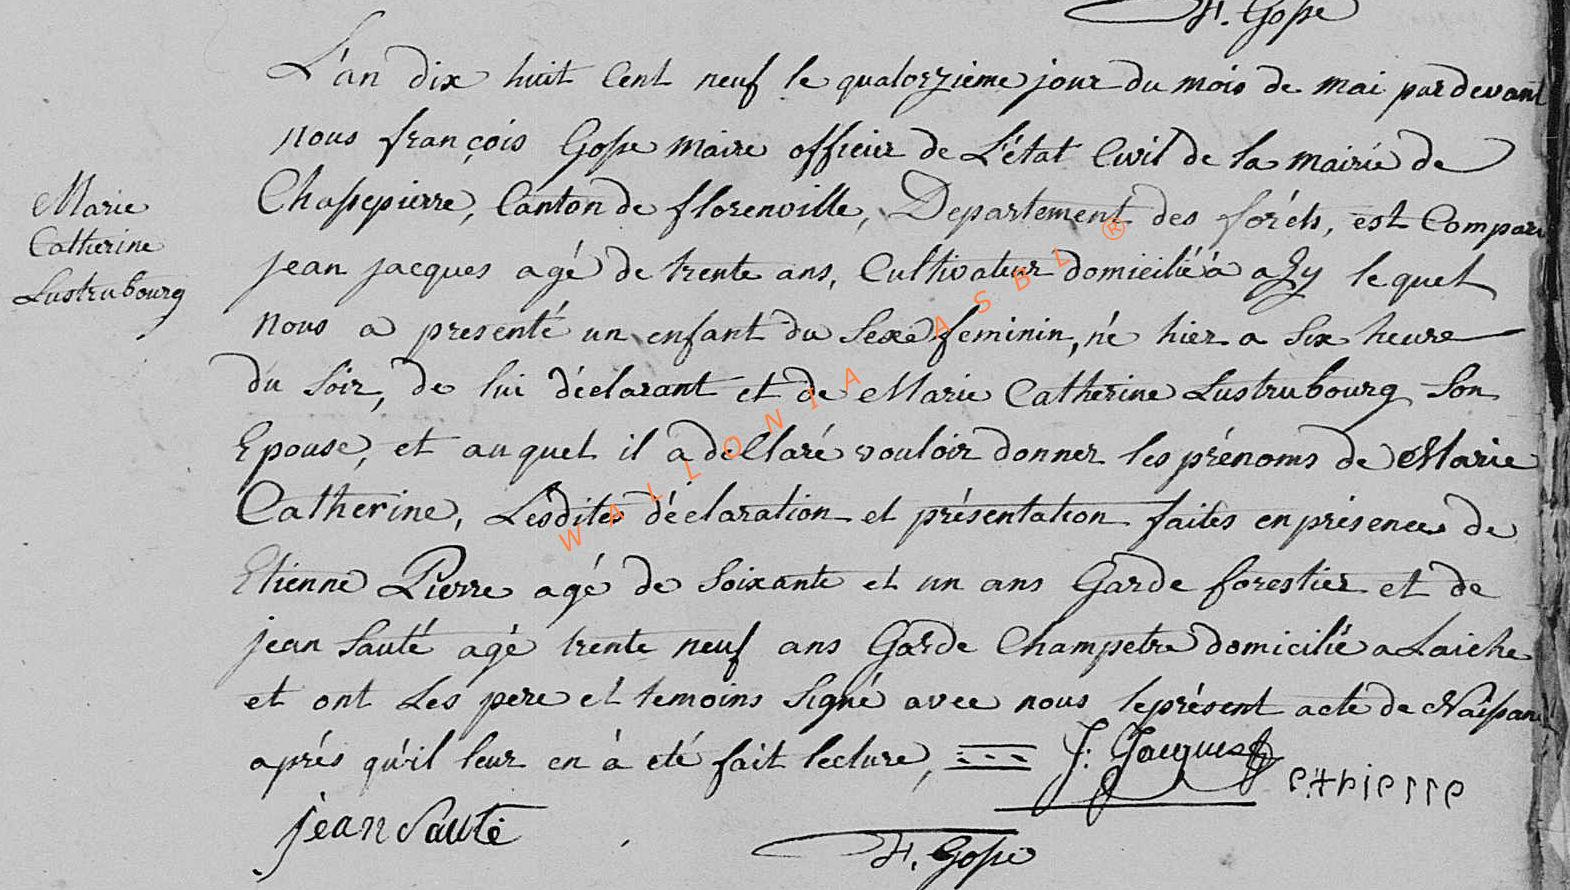 F. Gosse
L'an dix huit Cent neuf le quatorzieme jour du mois de mai pardevant
nous françois Gosse Maire officier de L'état Civil de la mairie de
Chassepierre, Canton de florenville, Departement des foréts, est Comparu
Marie
Catherine
Lustrubourg
jean jacques agé de trente ans, Cultivateur domicilié à aZy lequel
nous a presenté un enfant du Sexe feminin, né hier a Six heure
du Soir, de lui déclarant et de Marie Catherine Lustrubourg Son
Epouse, et auquel il a declaré vouloir donner les prénoms de Marie
Catherine, Lesdites déclaration et présentation faites en présence de
Etienne Pierre agé de Soixante et un ans Garde forestier et de
jean Sauté agé trente neuf ans Garde Champetre domicilié a Laiche
et ont Les pere et temoins Signé avec nous le présent acte de Naissance
aprés qu'il leur en à eté fait lecture,
J: Jacques
et pierre
jean Sauté
F. Gosse
WALLONIA ASBL ®